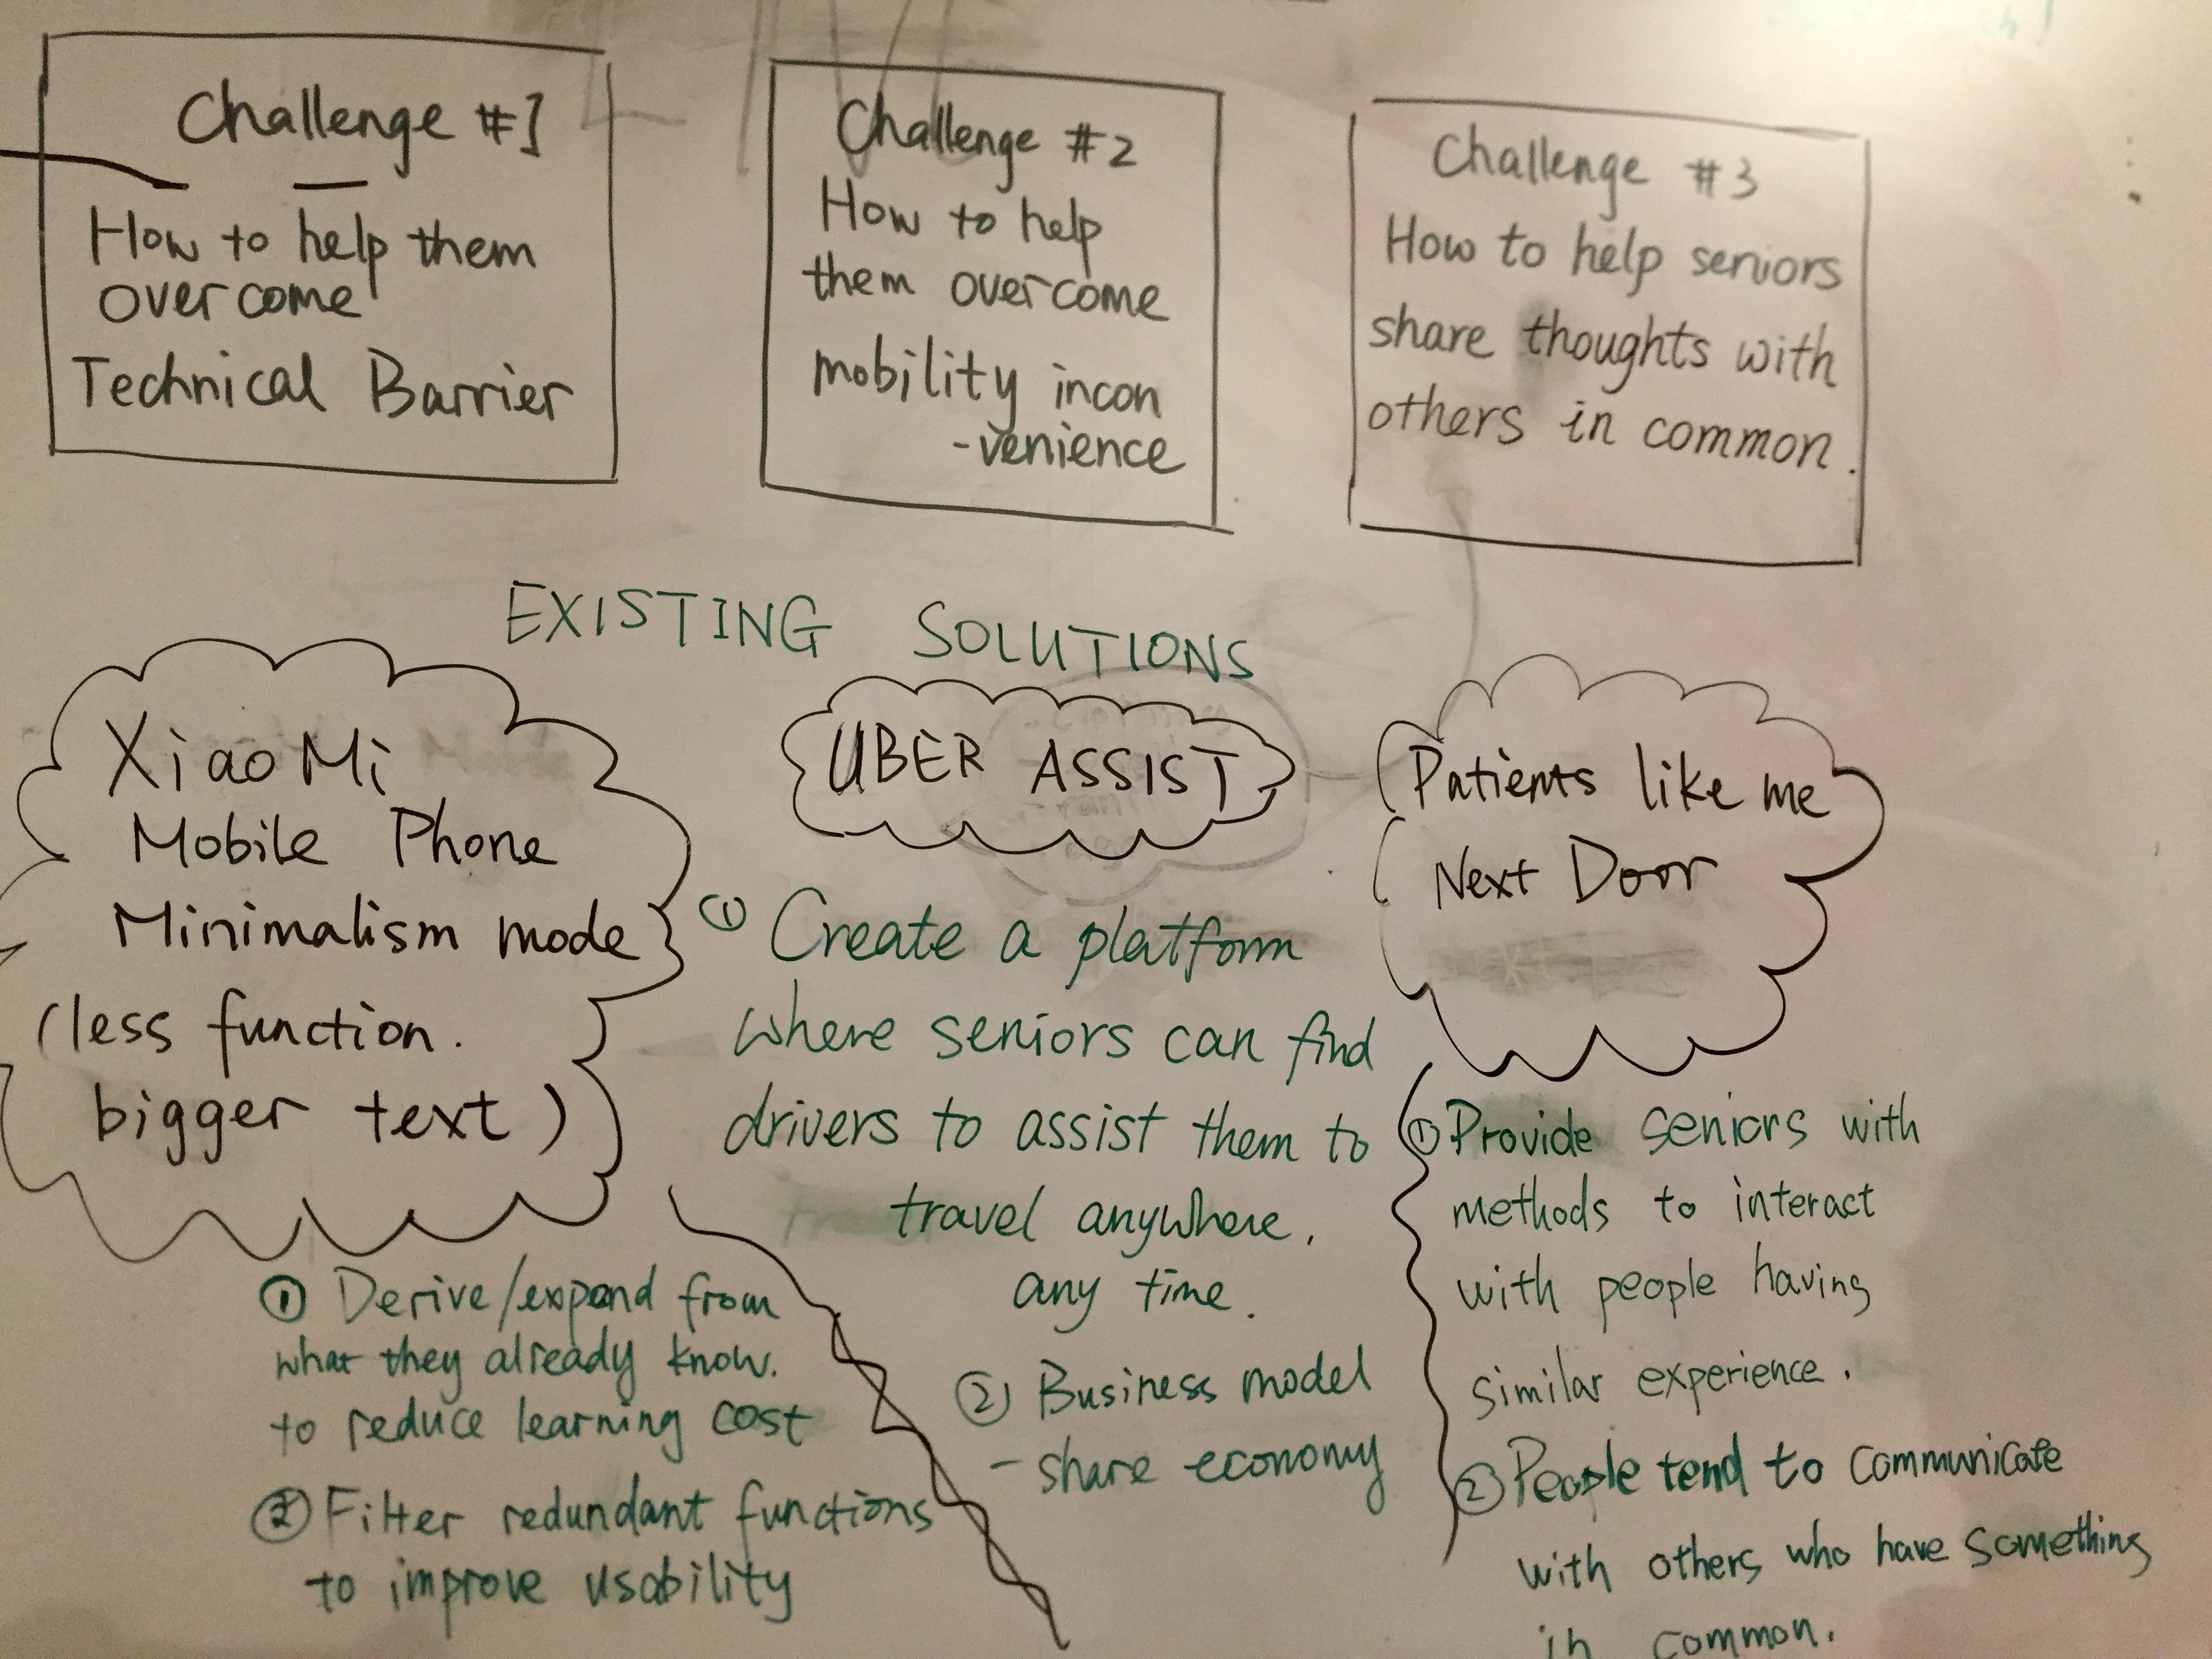 Challenge #1
How to help them
overcome
Technical Barrier
Challenge #2
How to help
them overcome
mobility incon
-venience
Challenge #3
How to help seniors
share thoughts with
others in common.
EXISTING SOLUTIONS
XiaoMi
Mobile Phone
Minimalism mode
(less function.
bigger text)
① Derive/expand from
what they already know.
to reduce learning cost
② Filter redundant functions
to improve usability
UBER ASSIST
① Create a platform
where seniors can find
drivers to assist them to
travel anywhere,
any time.
② Business model
- share economy
Patients like me
Next Door
① Provide seniors with
methods to interact
with people having
similar experience.
② People tend to communicate
with others who have something
in common.